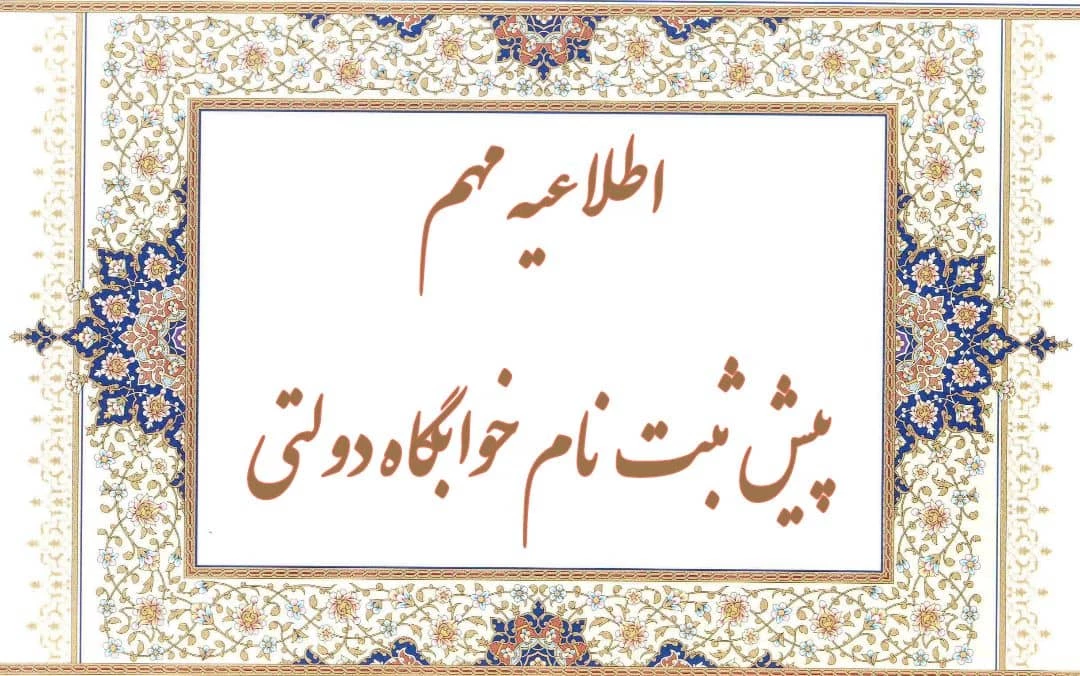 اطلاعیه مهم
پیش ثبت نام خوابگاه دولتی